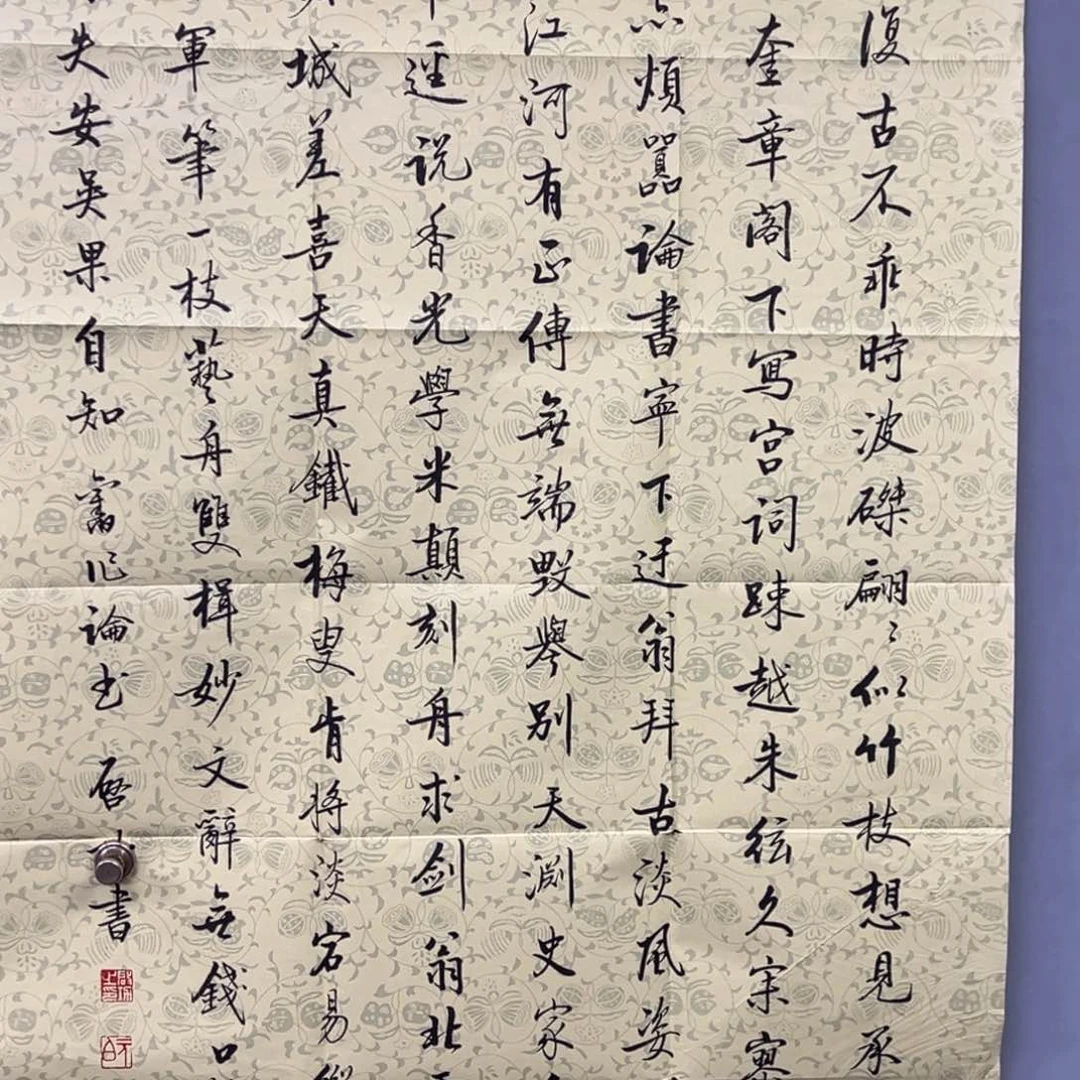 復古不乖時波磔翩〻似竹枝想見承
奎章閣下寫宮詞踈越朱弦久寂寥
煩嚣論書寧下迂翁拜古淡風姿
江河有正傳無端毀譽別天淵史家
逕說香光學米顛刻舟求劍翁北
城差喜天真鐵梅叟肯將淡宕易
軍筆一枝藝舟雙楫妙文辭無錢口
失安吳果自知舊作論书
启 書